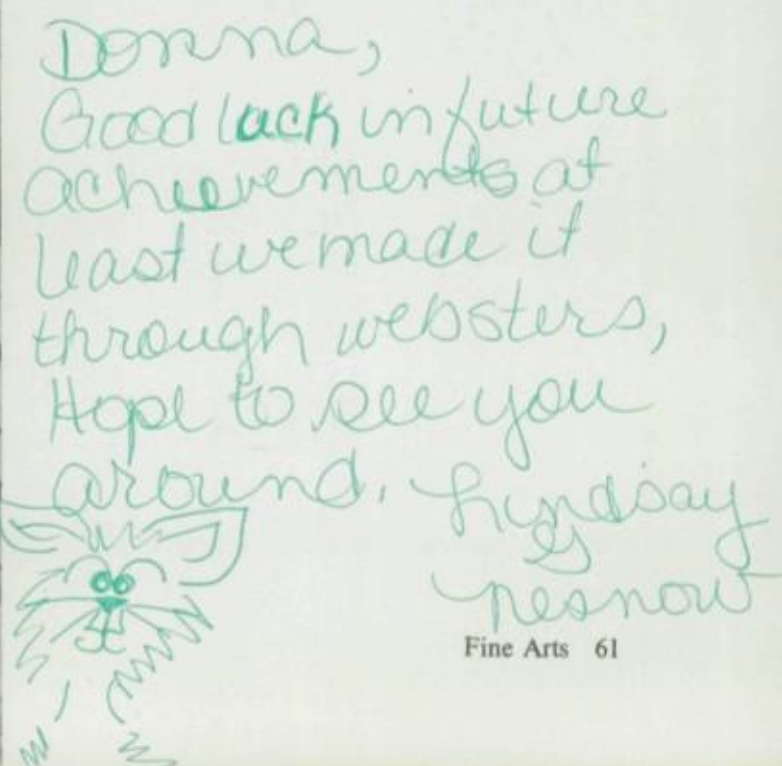 Donna,
Good luck in future
achievements at
least we made it
through websters,
Hope to see you
around. Lyndsay
Fine Arts 61